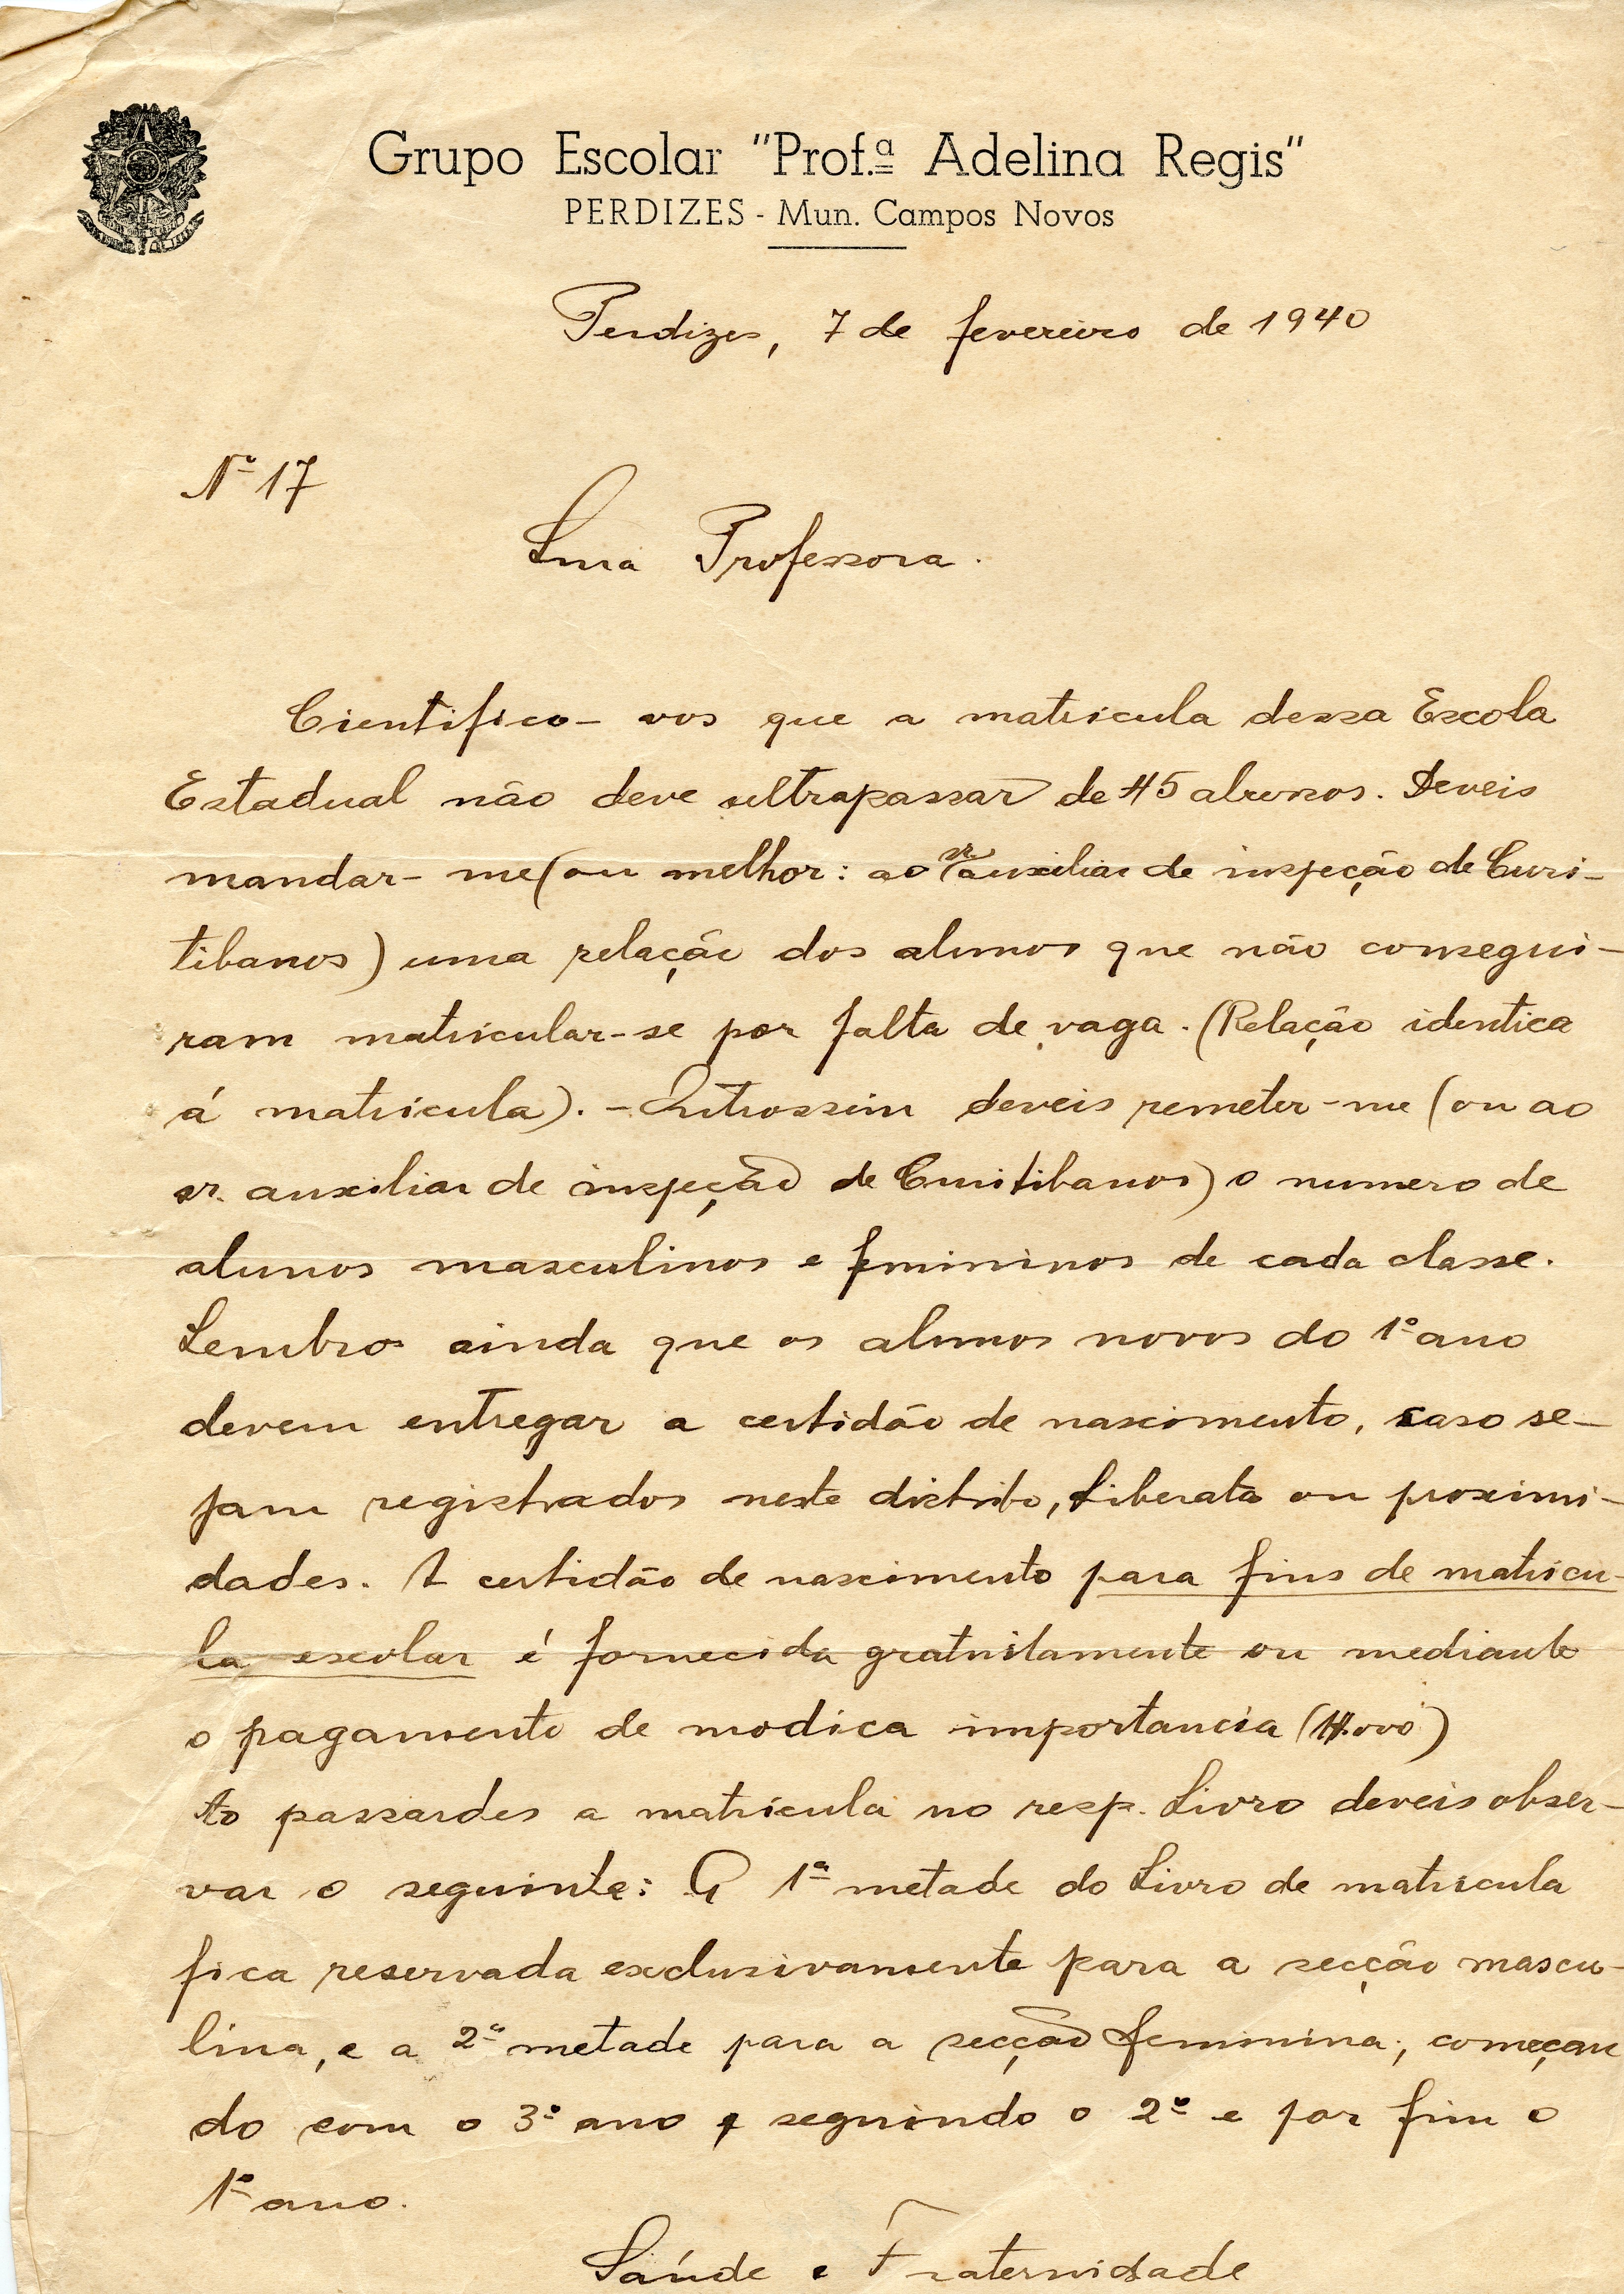 Grupo Escolar "Prof.ª Adelina Regis"
PERDIZES - Mun. Campos Novos
Perdizes, 7 de fevereiro de 1940
Nº 17
Snra Professora.
Cientifico-vos que a matricula dessa Escola
Estadual não deve ultrapassar de 45 alunos. Deveis
mandar-me (ou melhor: ao sr. auxiliar de inspeção de Curi-
tibanos) uma relação dos alunos que não consegui-
ram matricular-se por falta de vaga. (Relação identica
á matricula). - Outrossim deveis remeter-me (ou ao
sr. auxiliar de inspeção de Curitibanos) o numero de
alunos masculinos e femininos de cada classe.
Lembro ainda que os alunos novos do 1º ano
devem entregar a certidão de nascimento, caso se-
jam registrados neste distrito, Liberata ou proximi-
dades. A certidão de nascimento para fins de matricu-
la escolar é fornecida gratuitamente ou mediante
o pagamento de modica importancia
Ao passardes a matricula no resp. Livro deveis obser-
var o seguinte: A 1ª metade do Livro de matricula
fica reservada exclusivamente para a secção mascu-
lina, e a 2ª metade para a secção feminina; começan
do com o 3º ano, seguindo o 2º e por fim o
1º ano.
Saúde e Fraternidade